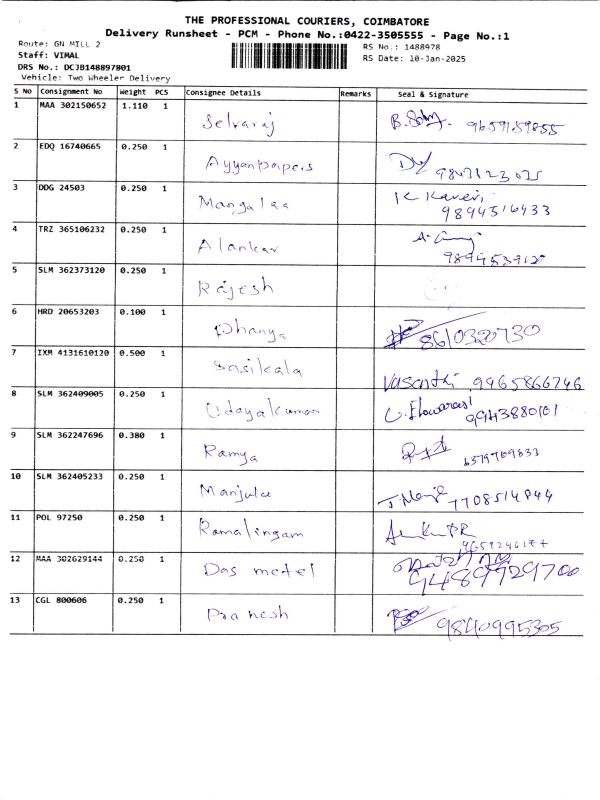 THE PROFESSIONAL COURIERS, COIMBATORE
Delivery Runsheet - PCM - Phone No.:0422-3505555 - Page No.:1
Route: GN MILL 2 RS No.: 1488978
Staff: VIMAL RS Date: 10-Jan-2025
DRS No.: DCJB148897801
Vehicle: Two Wheeler Delivery
S No Consignment No Weight PCS Consignee Details Remarks Seal & Signature
1 MAA 302150652 1.110 1 Selvaraj 9659159855
2 EDQ 16740665 0.250 1 Ayyanpapers
3 DDG 24503 0.250 1 Mangalaa K Kaveri
9894516433
4 TRZ 365106232 0.250 1 Alankar
5 SLM 362373120 0.250 1 Rajesh
6 HRD 20653203 0.100 1 Dhanya 8610320730
7 IXM 4131610120 0.500 1 Sasikala Vasanthi 9965866746
8 SLM 362409005 0.250 1 Udayakumar
9943880101
9 SLM 362247696 0.380 1 Ramya 6379709833
10 SLM 362405233 0.250 1 Manjula 7708514844
11 POL 97250 0.250 1 Ramalingam
12 MAA 302629144 0.250 1 Das metel
9489729700
13 CGL 800606 0.250 1 Pranesh 9840995305